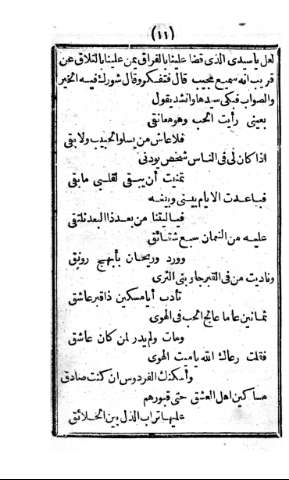 (١١)
لعل ياسيدى الذى قضا علينا بالفراق يمن علينا بالتلاق عن
قريب انه سميع مجيب قال فتفكر وقال شورك فيه الخير
والصواب فبكى سيدها وانشد يقول
بعينى رأيت الحب وهو معانقى
فلا عاش من يسلوا الحبيب ولا بقى
اذا كان لى فى الناس شخص يودنى
تمنيت أن يبقى لقلبى ما بقى
فباعدت الايام بينى وبينه
فياليتنا من بعد ذا البعد نلتقى
عليه من النمان سبع شقائق
وورد وريحان بأبهج رونق
وناديت من فى القبر جاوبنى الثرى
تأدب أيا مسكين ذا قبر عاشق
ثمانين عاما عالج الحب فى الهوى
ومات ولم يدر لمن كان عاشق
فقلت رعاك الله ياميت الهوى
وأسكنك الفردوس ان كنت صادق
مساكين اهل العشق حتى قبورهم
عليها تراب الذل بين الخلائق